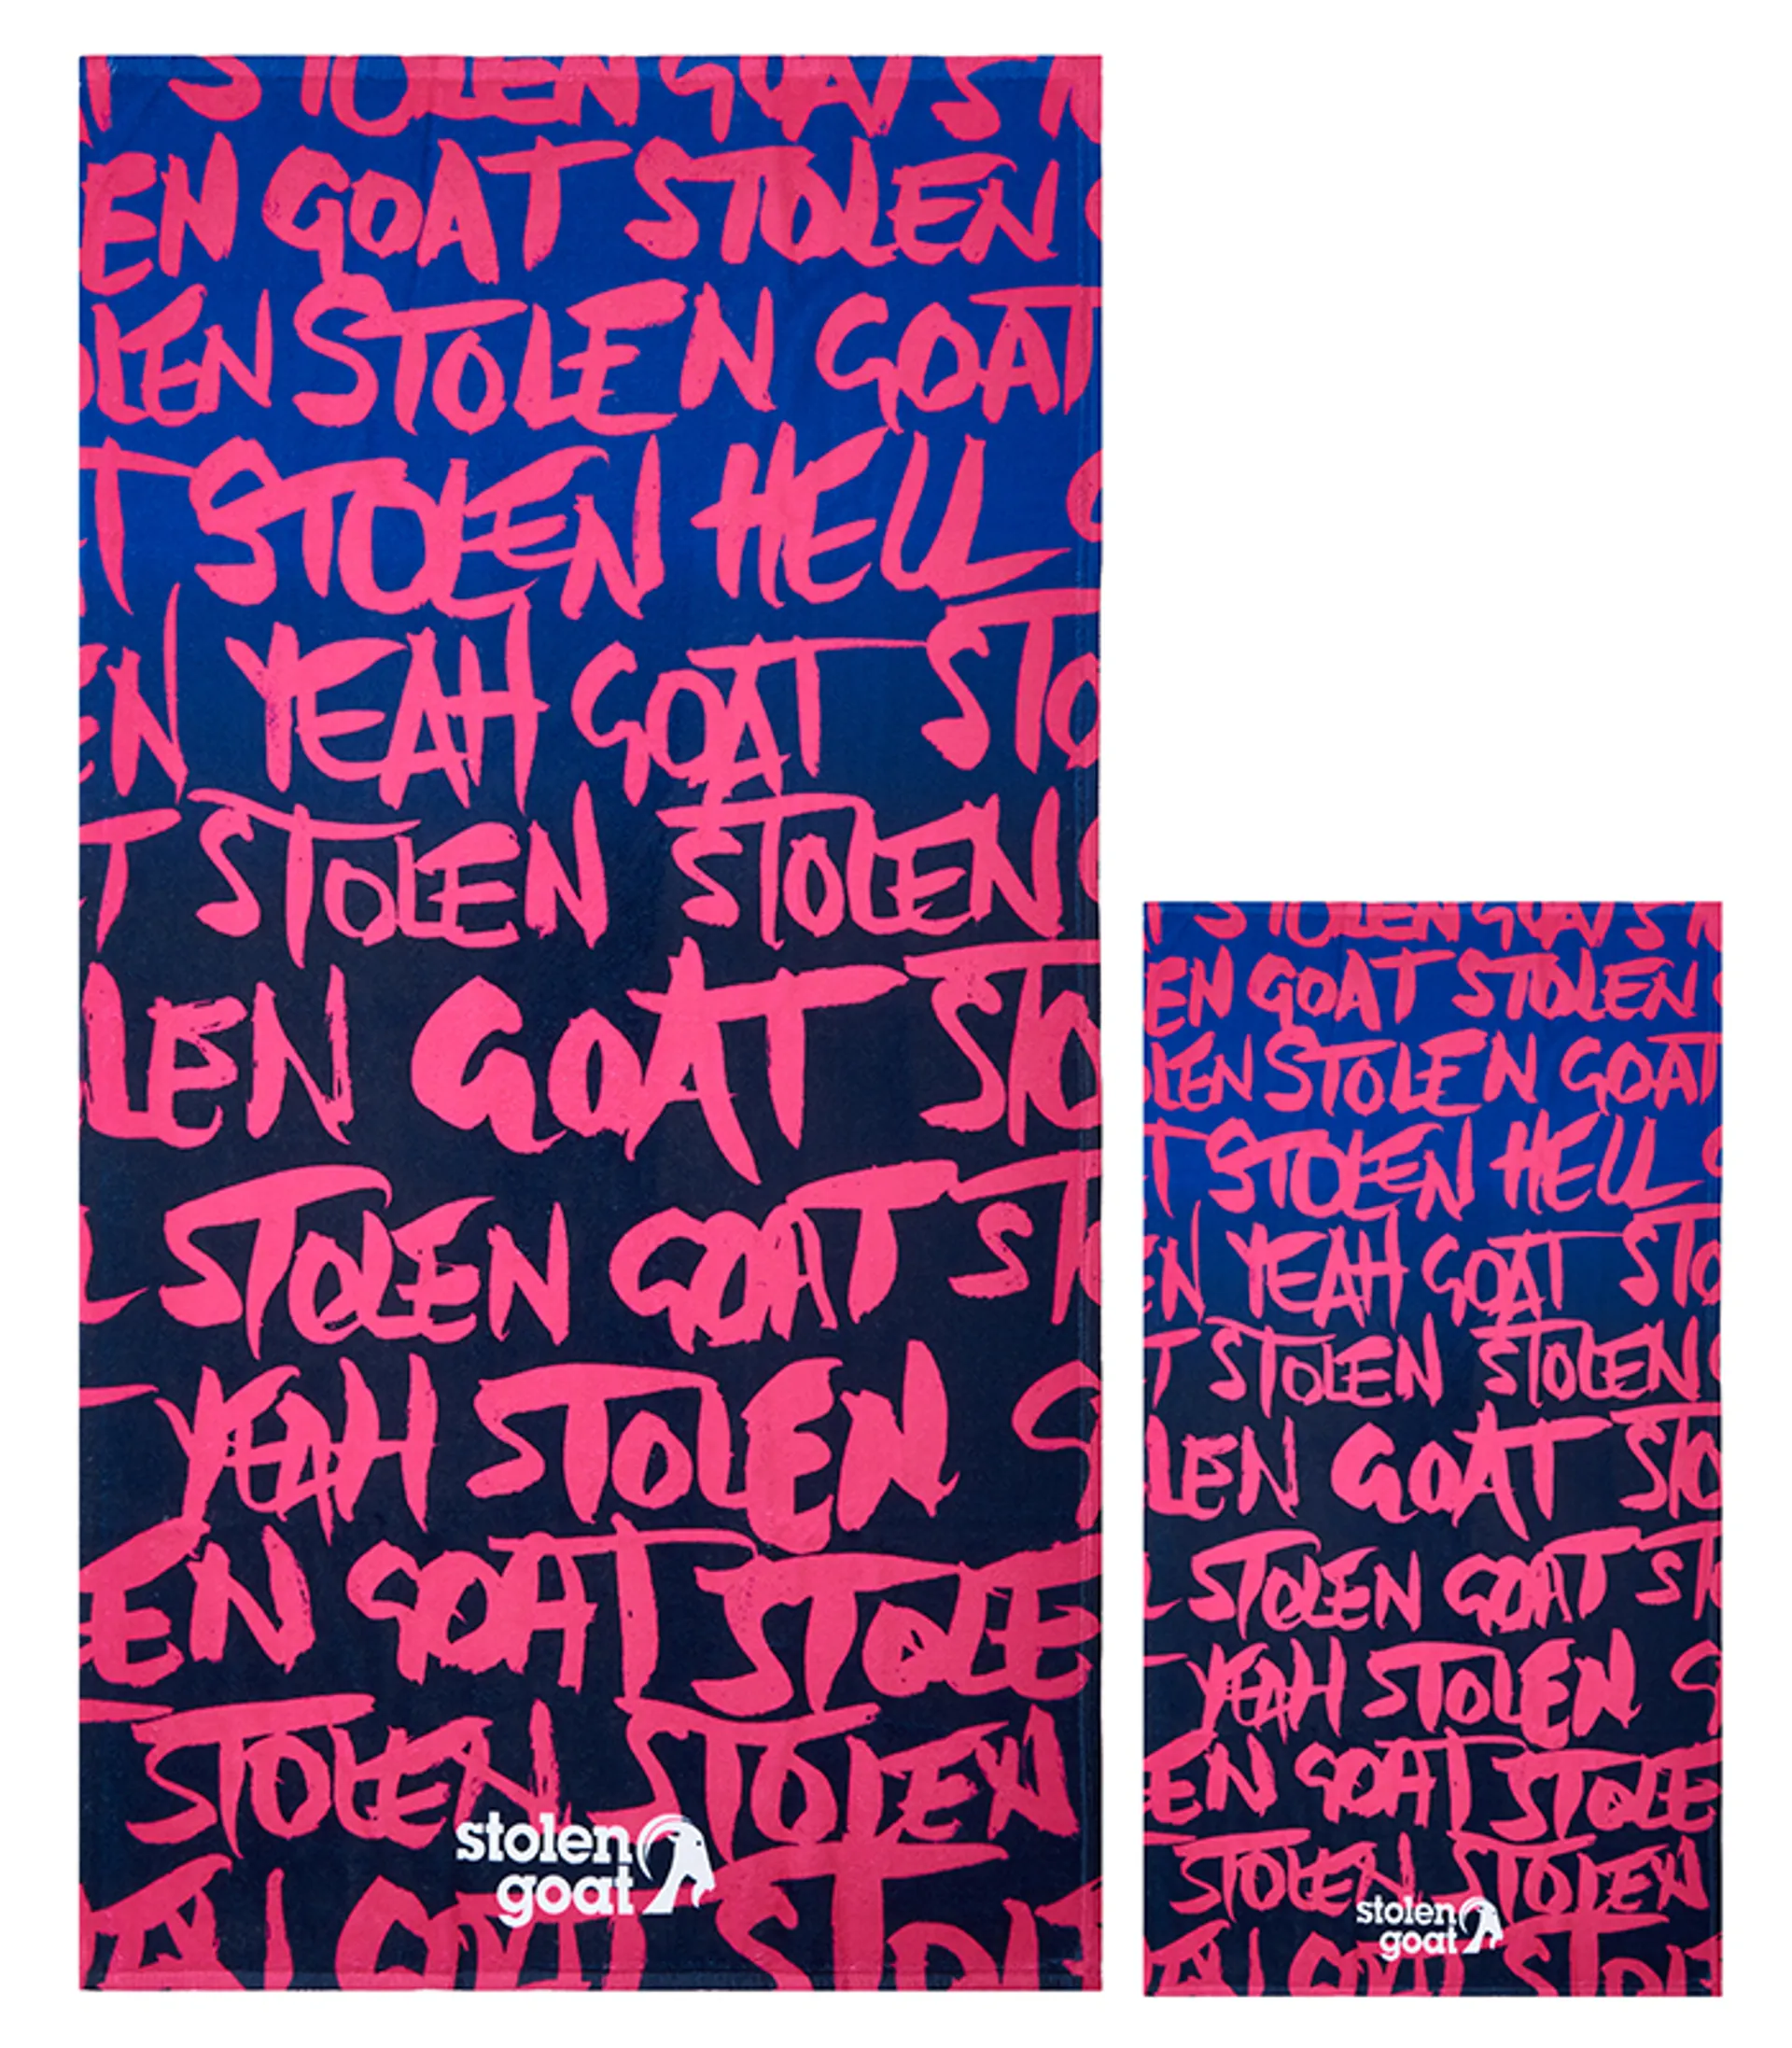 T STOLEN GOAT ST
EN GOAT STOLEN
OLEN STOLEN GOAT
T STOLEN HELL
EN YEAH GOAT STO
T STOLEN STOLEN
LEN GOAT STO
L STOLEN GOAT ST
YEAH STOLEN G
EN GOAT STOLE
STOLEN STOLEN
stolen
goat
GOAT STOLE
T STOLEN GOAT ST
EN GOAT STOLEN
OLEN STOLEN GOAT
T STOLEN HELL
EN YEAH GOAT STO
T STOLEN STOLEN
LEN GOAT STO
L STOLEN GOAT ST
YEAH STOLEN G
EN GOAT STOLE
STOLEN STOLEN
stolen
goat
GOAT STOLE